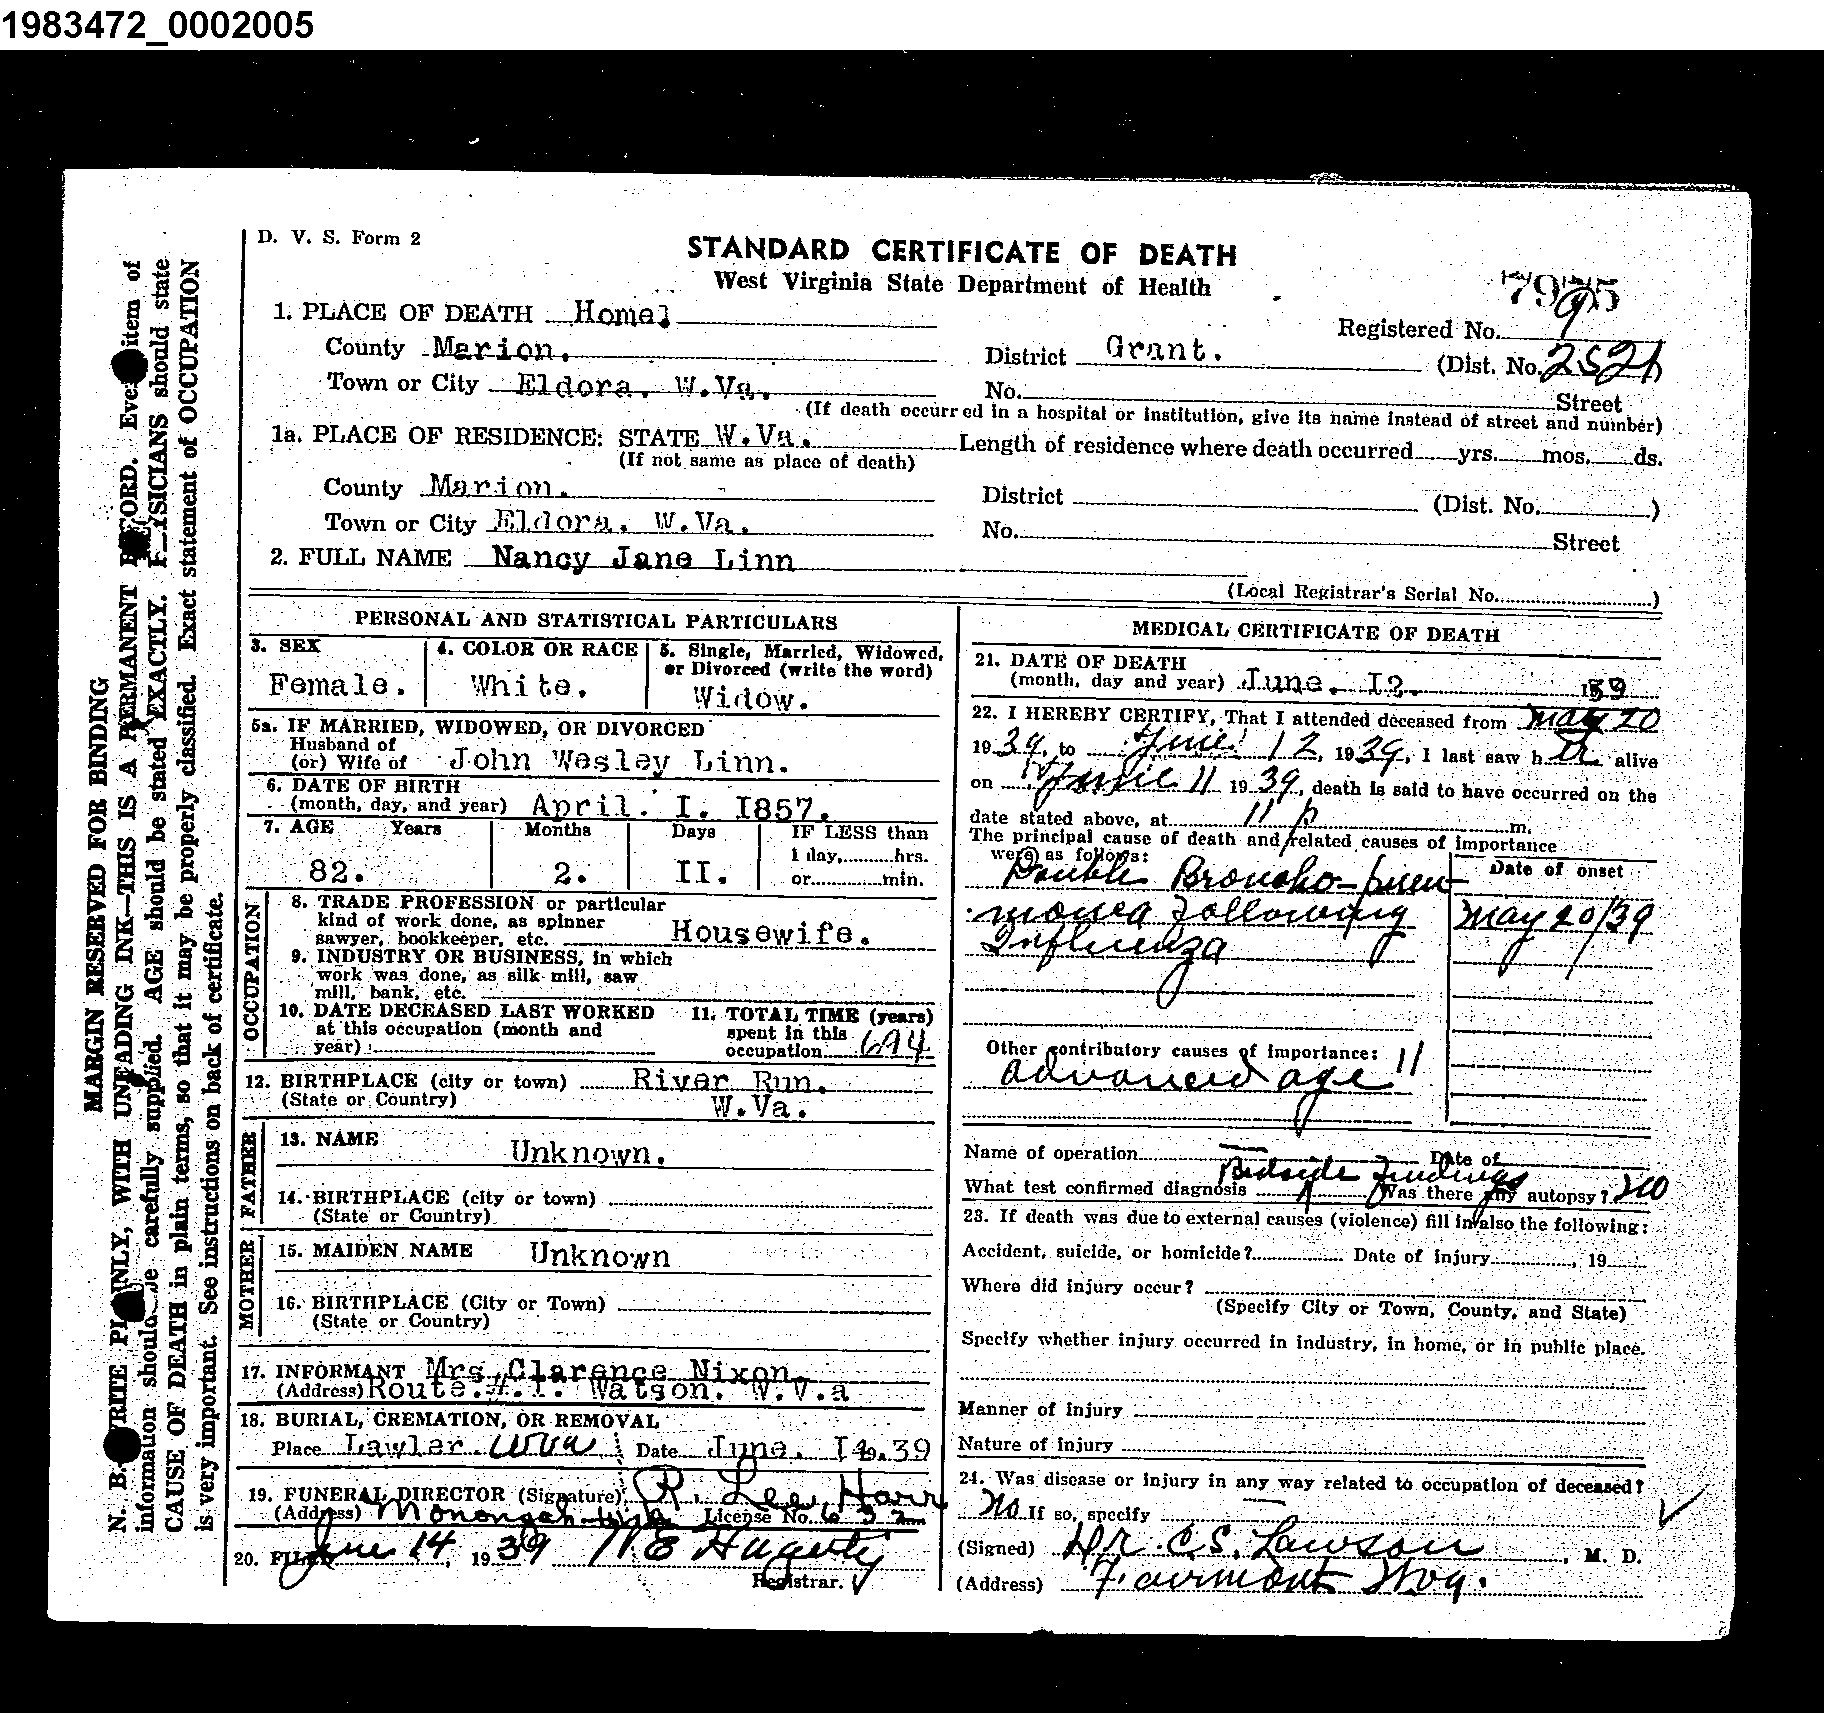 1983472_0002005
D. V. S. Form 2
STANDARD CERTIFICATE OF DEATH
West Virginia State Department of Health
1. PLACE OF DEATH Home
Registered No. 9
County Marion.
District Grant.
(Dist. No. 2521
Town or City Eldora. W.Va.
No. Street
(If death occurred in a hospital or institution, give its name instead of street and number)
1a. PLACE OF RESIDENCE: STATE W.Va. Length of residence where death occurred yrs. mos. ds.
(If not same as place of death)
County Marion.
District (Dist. No. )
Town or City Eldora. W.Va.
No. Street
2. FULL NAME Nancy Jane Linn
(Local Registrar's Serial No. )
PERSONAL AND STATISTICAL PARTICULARS
3. SEX
Female.
4. COLOR OR RACE
White.
5. Single, Married, Widowed,
or Divorced (write the word)
Widow.
5a. IF MARRIED, WIDOWED, OR DIVORCED
Husband of
(or) Wife of John Wesley Linn.
6. DATE OF BIRTH
(month, day, and year) April. I. I857.
7. AGE Years Months Days IF LESS than
1 day, hrs.
82. 2. II. or min.
OCCUPATION
8. TRADE PROFESSION or particular
kind of work done, as spinner
sawyer, bookkeeper, etc. Housewife.
9. INDUSTRY OR BUSINESS, in which
work was done, as silk mill, saw
mill, bank, etc.
10. DATE DECEASED LAST WORKED
at this occupation (month and
year)
11. TOTAL TIME (years)
spent in this
occupation
12. BIRTHPLACE (city or town) River Run.
(State or Country) W.Va.
FATHER
13. NAME Unknown.
14. BIRTHPLACE (city or town)
(State or Country)
MOTHER
15. MAIDEN NAME Unknown
16. BIRTHPLACE (City or Town)
(State or Country)
17. INFORMANT Mrs. Clarence Nixon.
(Address) Route.#.I. Watson. W.V.a
18. BURIAL, CREMATION, OR REMOVAL
Place Lawler. W Va Date June. I4 19.39
19. FUNERAL DIRECTOR (Signature) R. Lee Harr
(Address) Monongah License No. 632
20. FILED June 14, 1939 Hagerty
Registrar.
MEDICAL CERTIFICATE OF DEATH
21. DATE OF DEATH
(month, day and year) June. I2. 39
22. I HEREBY CERTIFY, That I attended deceased from May 20
1939, to June 12, 1939, I last saw her alive
on June 11 1939, death is said to have occurred on the
date stated above, at 11 p m.
The principal cause of death and related causes of importance
were as follows:
Date of onset
Double Broncho-pneu
monia Following May 20/39
Influenza
Other contributory causes of importance:
advanced age 11
Name of operation Date of
What test confirmed diagnosis Bedside Findings Was there any autopsy? no
23. If death was due to external causes (violence) fill in also the following:
Accident, suicide, or homicide? Date of injury , 19
Where did injury occur?
(Specify City or Town, County, and State)
Specify whether injury occurred in industry, in home, or in public place.
Manner of injury
Nature of injury
24. Was disease or injury in any way related to occupation of deceased?
No If so, specify
(Signed) Dr. C.S. Lawson, M. D.
(Address) Fairmont W Va.
MARGIN RESERVED FOR BINDING
N. B. WRITE PLAINLY, WITH UNFADING INK—THIS IS A PERMANENT RECORD. Every item of
information should be carefully supplied. AGE should be stated EXACTLY. PHYSICIANS should state
CAUSE OF DEATH in plain terms, so that it may be properly classified. Exact statement of OCCUPATION
is very important. See instructions on back of certificate.